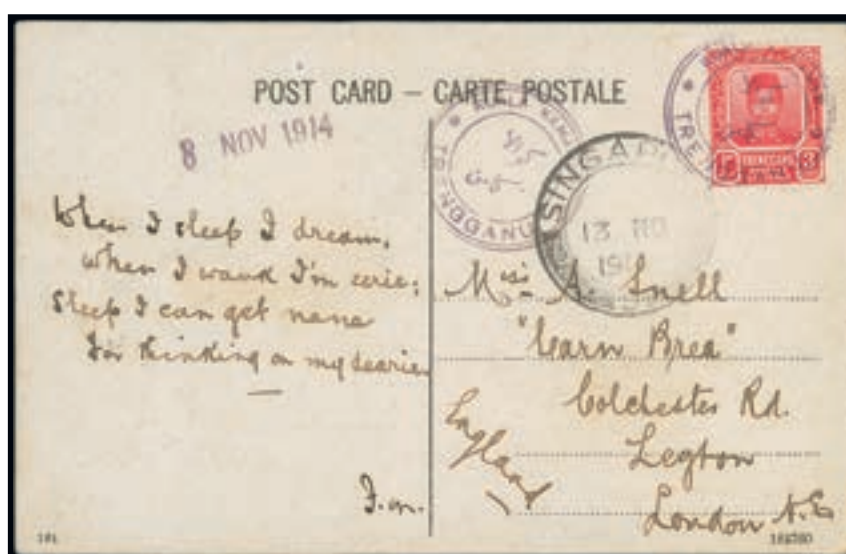 POST CARD – CARTE POSTALE
8 NOV 1914
When I sleep I dream,
When I wauk I'm eerie;
Sleep I can get nane
For thinking on my dearie
TRENGGANU
SINGAP
13 NO
Miss A. Snell
"Carn Brea"
Colchester Rd.
Leyton
London N.E
England
191